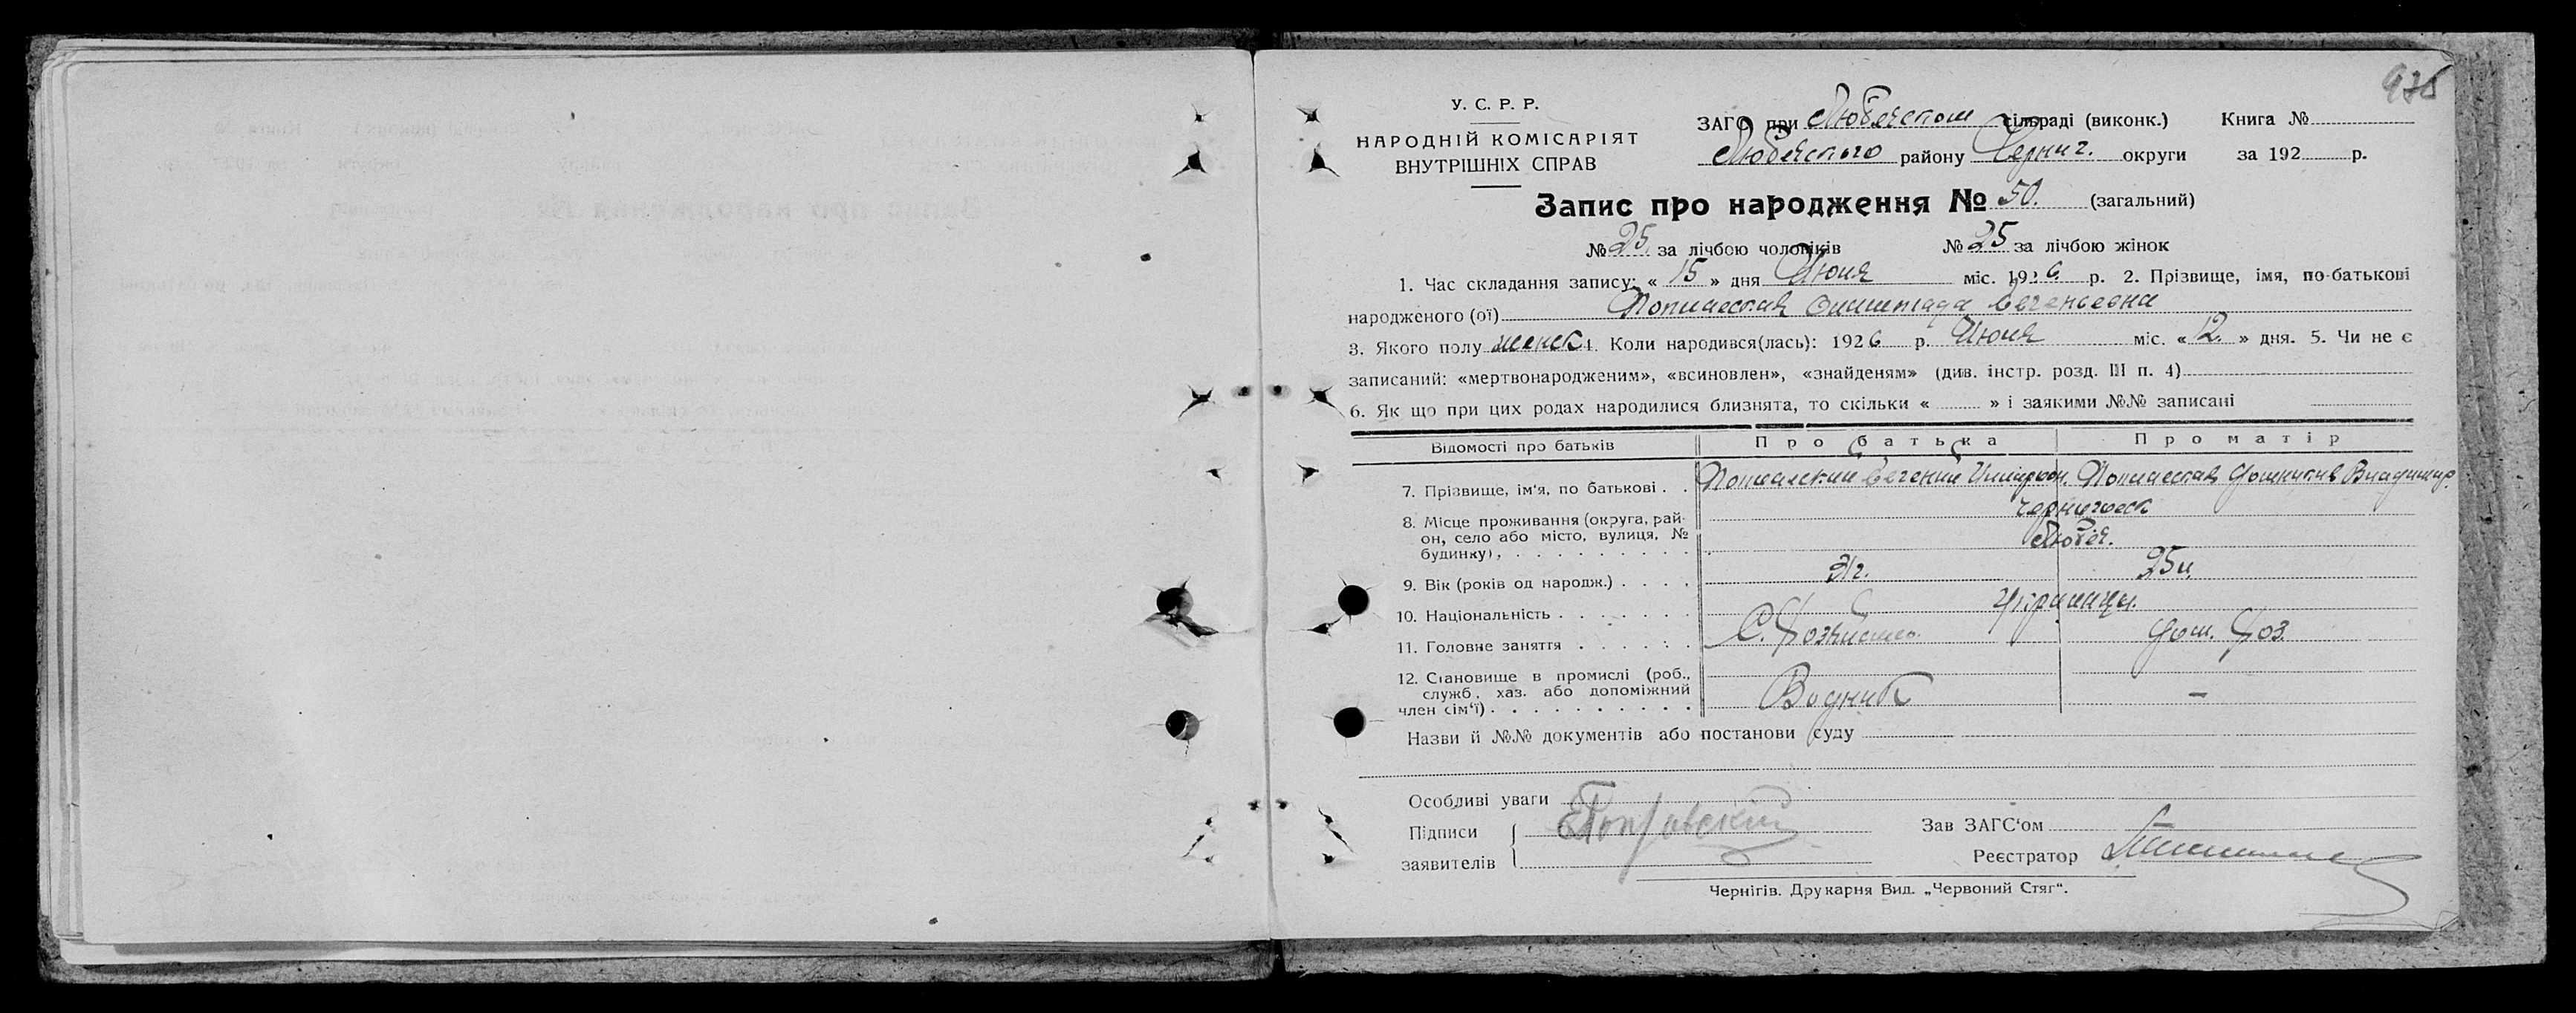 У. С. Р. Р.
НАРОДНІЙ КОМІСАРІЯТ
ВНУТРІШНІХ СПРАВ
ЗАГС при Любечском сільраді (виконк.) Книга №
Любечского району Черниг. округи за 192 р.
Запис про народження № 50. (загальний)
№ 25. за лічбою чоловіків № 25 за лічбою жінок
1. Час складання запису: « 15 » дня Июня міс. 1926. р. 2. Прізвище, імя, по-батькові
народженого (ої) Олимпиада Евгеньевна
3. Якого полу женск 4. Коли народився(лась): 1926 р. Июня міс. « 12. » дня. 5. Чи не є
записаний: «мертвонародженим», «всиновлен», «знайденям» (див. інстр. розд. III п. 4)
6. Як що при цих родах народилися близнята, то скільки « » і заякими №№ записані
Відомості про батьків Про батька Про матір
7. Прізвище, ім'я, по батькові . . Евгений Владимир.
8. Місце проживання (округа, рай- Черниговск
он, село або місто, вулиця, № Любеч.
будинку),
9. Вік (років од народж.) . . . . 31г. 25л.
10. Національність . . . . . . . Украинцы.
11. Головне заняття . . . . . . Дом. Хоз.
12. Становище в промислі (роб.,
служб, хаз. або допоміжний Водник –
член сім'ї) . . . . . . . . . .
Назви й №№ документів або постанови суду
Особливі уваги
Підписи Зав ЗАГС'ом
заявителів Реєстратор
Чернігів. Друкарня Вид. „Червоний Стяг".